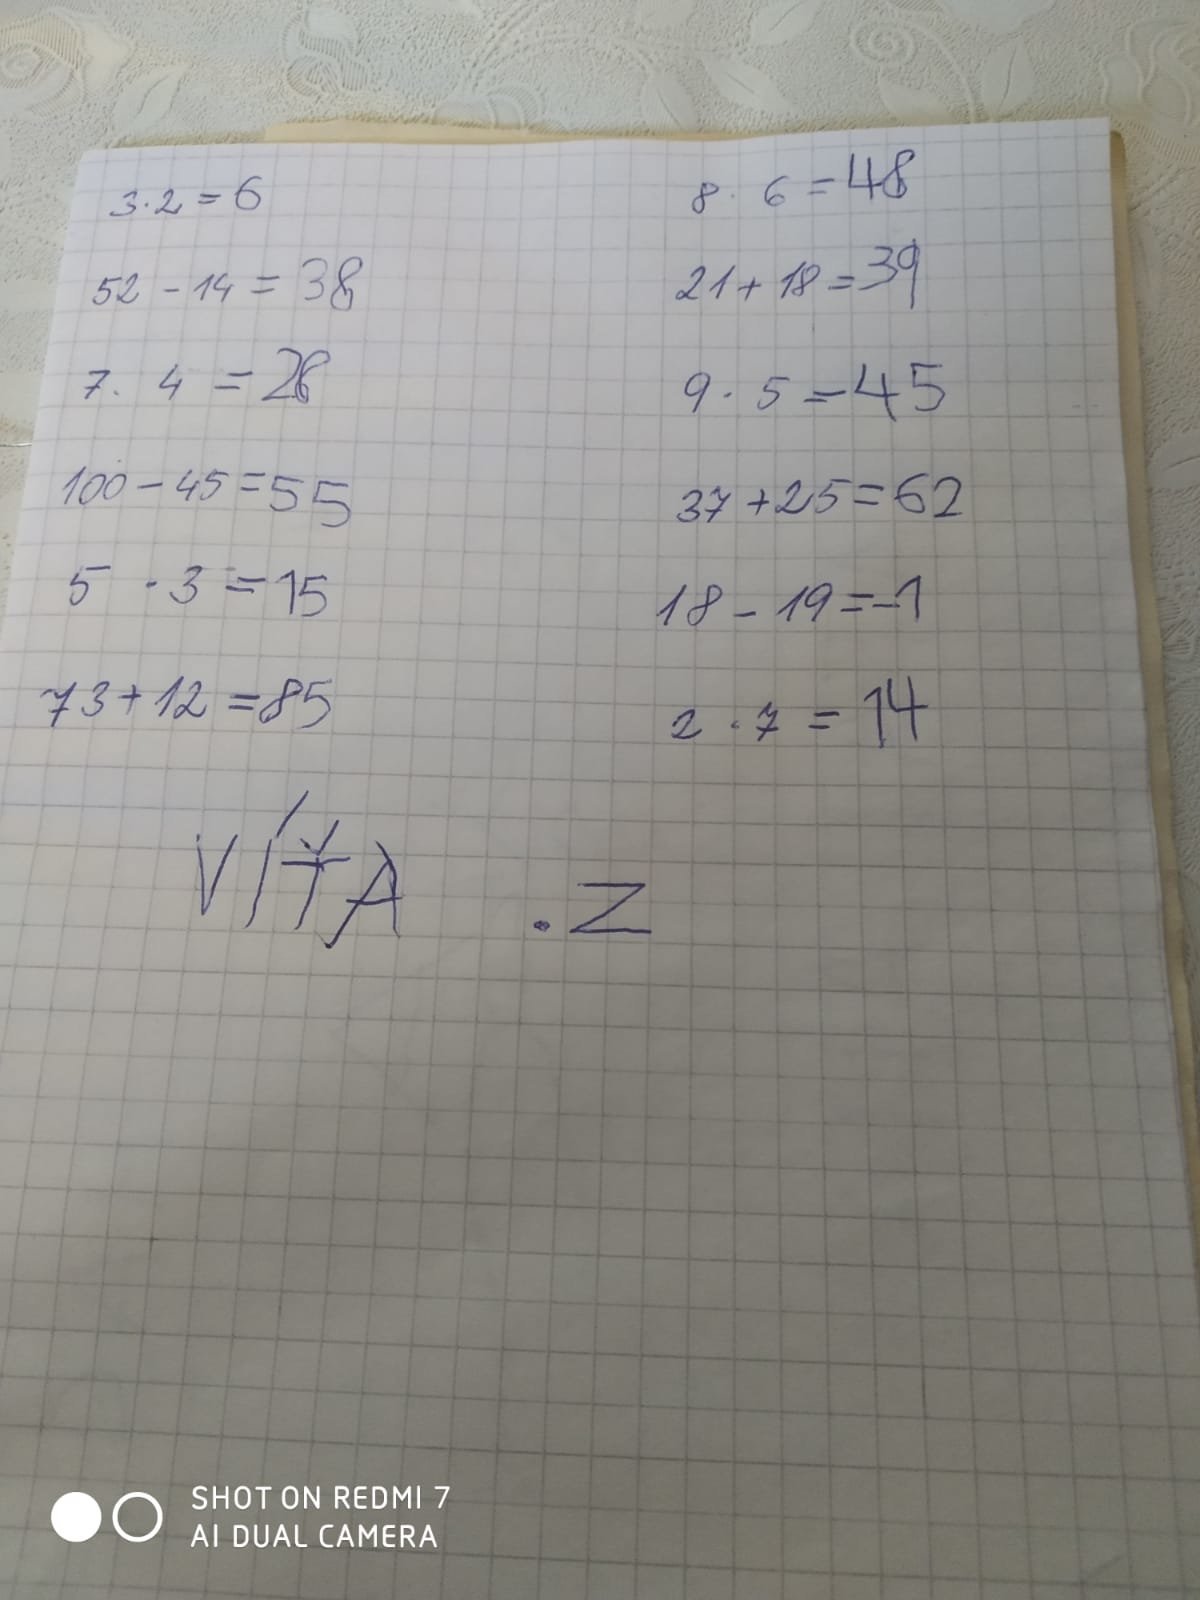 3·2=6 8·6=48
52-14=38 21+18=39
7·4=28 9·5=45
100-45=55 37+25=62
5·3=15 18-19=-1
73+12=85 2·7=14
VÍŤA .Z
SHOT ON REDMI 7
AI DUAL CAMERA